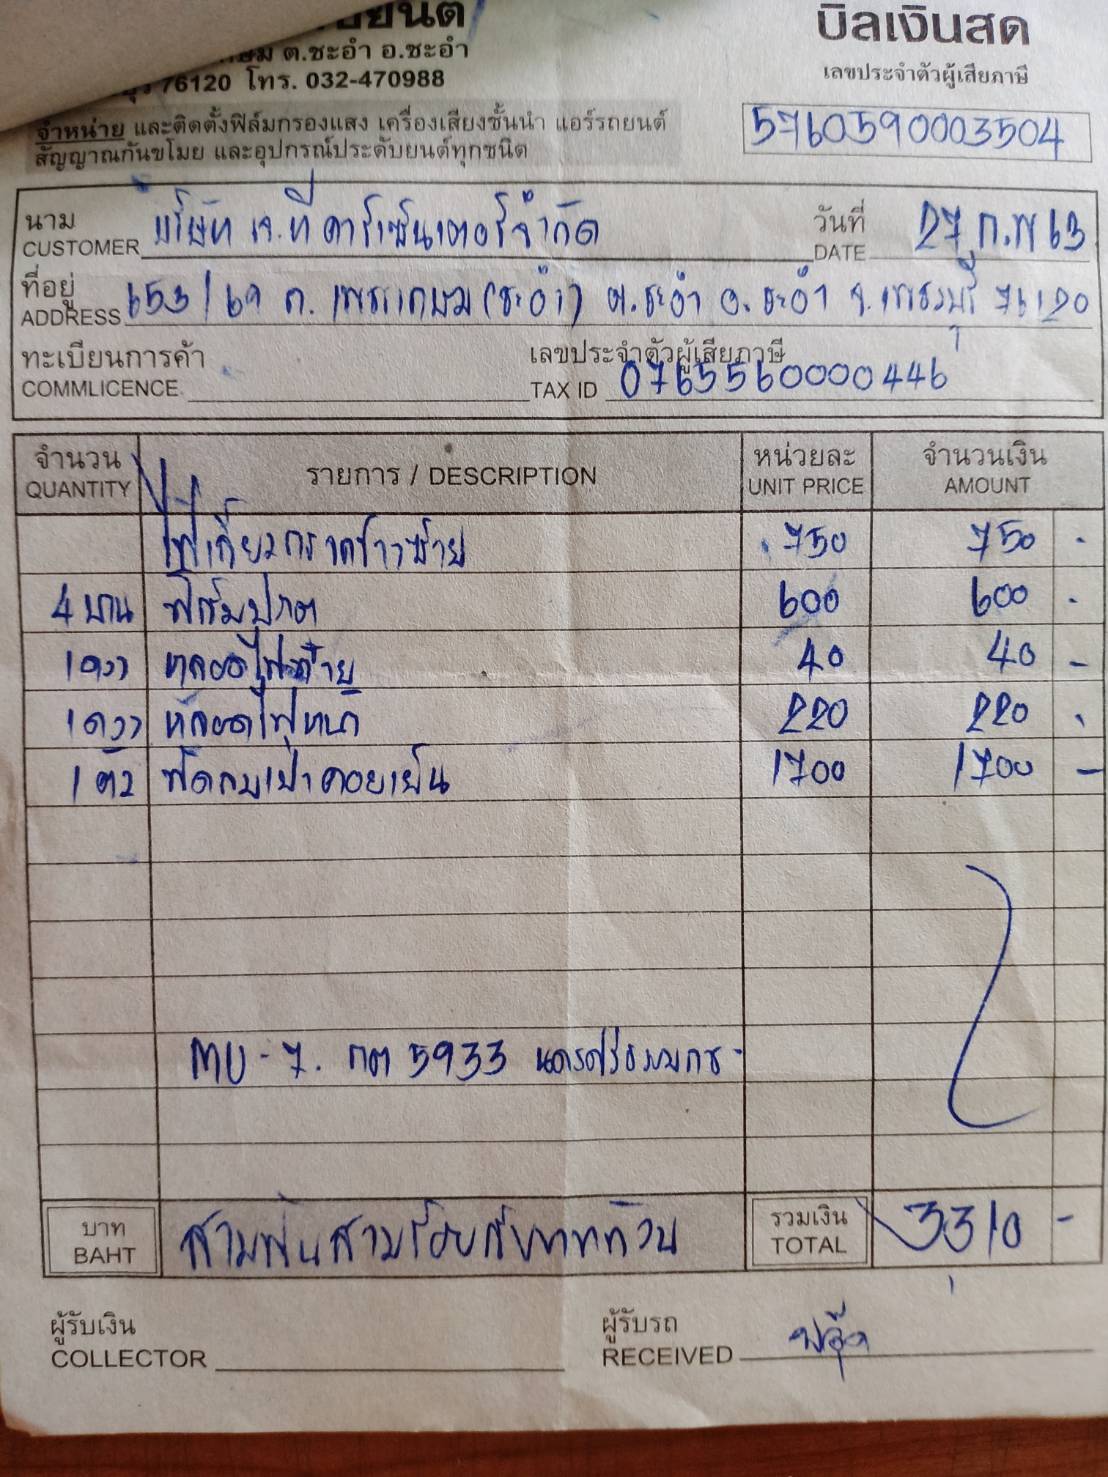 ต.ชะอำ อ.ชะอำ
76120 โทร. 032-470988
จำหน่าย และติดตั้งฟิล์มกรองแสง เครื่องเสียงชั้นนำ แอร์รถยนต์
สัญญาณกันขโมย และอุปกรณ์ประดับยนต์ทุกชนิด
บิลเงินสด
เลขประจำตัวผู้เสียภาษี
5760590003504
นาม บริษัท เจ.ที คาร์เซ็นเตอร์จำกัด วันที่ 27 ก.พ 63
CUSTOMER DATE
ที่อยู่ 653/69 ถ. เพชรเกษม (ชะอำ) ต.ชะอำ อ.ชะอำ จ.เพชรบุรี 76120
ADDRESS
ทะเบียนการค้า เลขประจำตัวผู้เสียภาษี
COMMLICENCE. TAX ID 0765560000446
จำนวน รายการ / DESCRIPTION หน่วยละ จำนวนเงิน
QUANTITY UNIT PRICE AMOUNT
750 750 -
4 บาน ฟิล์มปรอท 600 600 -
1 ดวง หลอดไฟท้าย 40 40 -
1 ดวง หลอดไฟหน้า 220 220 -
1 ตัว พัดลมเป่าคอยเย็น 1700 1700 -
MU-7. กต 5933 นครศรีธรรมราช
บาท สามพันสามร้อยสิบบาทถ้วน รวมเงิน 3310 -
BAHT TOTAL
ผู้รับเงิน ผู้รับรถ
COLLECTOR RECEIVED